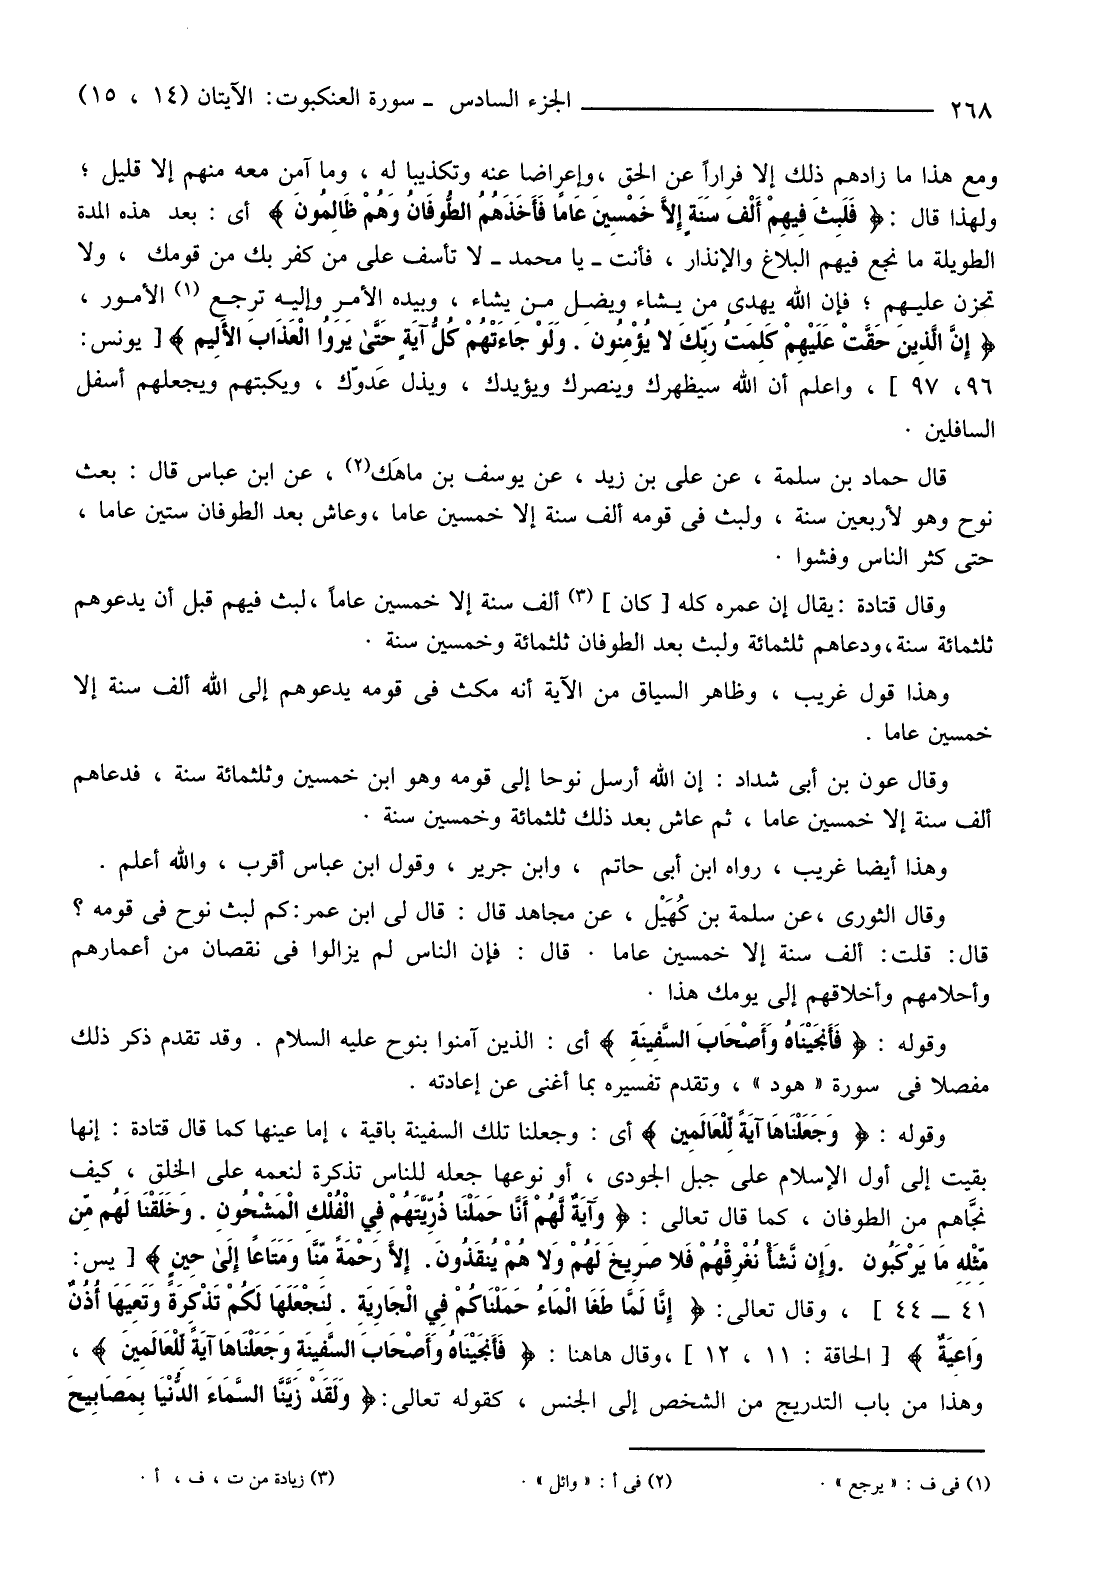 ٢٦٨ ــــــــــــ الجزء السادس ـ سورة العنكبوت: الآيتان (١٤ ، ١٥)
ومع هذا ما زادهم ذلك إلا فراراً عن الحق ،وإعراضا عنه وتكذيبا له ، وما آمن معه منهم إلا قليل ؛
ولهذا قال :﴿ فَلَبِثَ فِيهِمْ أَلْفَ سَنَةٍ إِلاَّ خَمْسِينَ عَاماً فَأَخَذَهُمُ الطُّوفَانُ وَهُمْ ظَالِمُونَ ﴾ أى : بعد هذه المدة
الطويلة ما نجع فيهم البلاغ والإنذار ، فأنت ـ يا محمد ـ لا تأسف على من كفر بك من قومك ، ولا
تحزن عليهم ؛ فإن الله يهدى من يشاء ويضل من يشاء ، وبيده الأمر وإليه ترجع (١) الأمور ،
﴿ إِنَّ الَّذِينَ حَقَّتْ عَلَيْهِمْ كَلِمَتُ رَبِّكَ لا يُؤْمِنُونَ . وَلَوْ جَاءَتْهُمْ كُلُّ آيَةٍ حَتَّىٰ يَرَوُا الْعَذَابَ الأَلِيم ﴾ [ يونس:
٩٦، ٩٧ ] ، واعلم أن الله سيظهرك وينصرك ويؤيدك ، ويذل عَدوّك ، ويكبتهم ويجعلهم أسفل
السافلين .
قال حماد بن سلمة ، عن على بن زيد ، عن يوسف بن ماهَك(٢) ، عن ابن عباس قال : بعث
نوح وهو لأربعين سنة ، ولبث فى قومه ألف سنة إلا خمسين عاما ،وعاش بعد الطوفان ستين عاما ،
حتى كثر الناس وفشوا .
وقال قتادة :يقال إن عمره كله [ كان ] (٣) ألف سنة إلا خمسين عاماً ،لبث فيهم قبل أن يدعوهم
ثلثمائة سنة،ودعاهم ثلثمائة ولبث بعد الطوفان ثلثمائة وخمسين سنة .
وهذا قول غريب ، وظاهر السياق من الآية أنه مكث فى قومه يدعوهم إلى الله ألف سنة إلا
خمسين عاما .
وقال عون بن أبى شداد : إن الله أرسل نوحا إلى قومه وهو ابن خمسين وثلثمائة سنة ، فدعاهم
ألف سنة إلا خمسين عاما ، ثم عاش بعد ذلك ثلثمائة وخمسين سنة .
وهذا أيضا غريب ، رواه ابن أبى حاتم ، وابن جرير ، وقول ابن عباس أقرب ، والله أعلم .
وقال الثورى ،عن سلمة بن كُهَيْل ، عن مجاهد قال : قال لى ابن عمر:كم لبث نوح فى قومه ؟
قال: قلت: ألف سنة إلا خمسين عاما . قال : فإن الناس لم يزالوا فى نقصان من أعمارهم
وأحلامهم وأخلاقهم إلى يومك هذا .
وقوله : ﴿ فَأَنجَيْنَاهُ وَأَصْحَابَ السَّفِينَةِ ﴾ أى : الذين آمنوا بنوح عليه السلام . وقد تقدم ذكر ذلك
مفصلا فى سورة « هود » ، وتقدم تفسيره بما أغنى عن إعادته .
وقوله : ﴿ وَجَعَلْنَاهَا آيَةً لِّلْعَالَمِين ﴾ أى : وجعلنا تلك السفينة باقية ، إما عينها كما قال قتادة : إنها
بقيت إلى أول الإسلام على جبل الجودى ، أو نوعها جعله للناس تذكرة لنعمه على الخلق ، كيف
نجَّاهم من الطوفان ، كما قال تعالى : ﴿ وَآيَةٌ لَّهُمْ أَنَّا حَمَلْنَا ذُرِّيَّتَهُمْ فِي الْفُلْكِ الْمَشْحُونِ . وَخَلَقْنَا لَهُم مِّن
مِّثْلِهِ مَا يَرْكَبُون .وَإِن نَّشَأْ نُغْرِقْهُمْ فَلا صَرِيخَ لَهُمْ وَلا هُمْ يُنقَذُونَ. إِلاَّ رَحْمَةً مِّنَّا وَمَتَاعًا إِلَىٰ حِينٍ ﴾ [ يس:
٤١ ــ ٤٤ ] ، وقال تعالى: ﴿ إِنَّا لَمَّا طَغَا الْمَاءُ حَمَلْنَاكُمْ فِي الْجَارِيَةِ . لِنَجْعَلَهَا لَكُمْ تَذْكِرَةً وَتَعِيَهَا أُذُنٌ
وَاعِيَةٌ ﴾ [ الحاقة : ١١ ، ١٢ ] ،وقال هاهنا : ﴿ فَأَنجَيْنَاهُ وَأَصْحَابَ السَّفِينَةِ وَجَعَلْنَاهَا آيَةً لِّلْعَالَمِينَ ﴾ ،
وهذا من باب التدريج من الشخص إلى الجنس ، كقوله تعالى:﴿ وَلَقَدْ زَيَّنَّا السَّمَاءَ الدُّنْيَا بِمَصَابِيحَ
(١) فى ف : « يرجع » . (٢) فى أ : « وائل » . (٣) زيادة من ت ، ف ، أ .